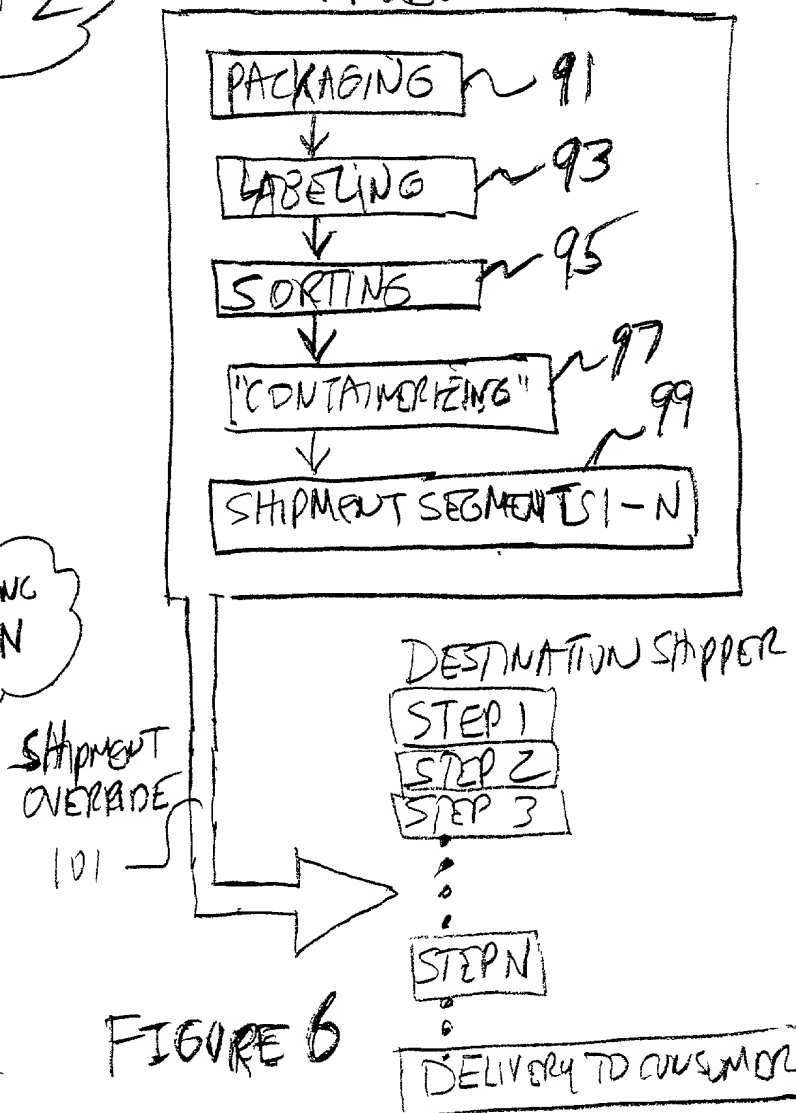 PACKAGING 91
LABELING 93
SORTING 95
"CONTAINERIZING" 97
99
SHIPMENT SEGMENTS 1-N
N
SHIPMENT
OVERRIDE
101
DESTINATION SHIPPER
STEP 1
STEP 2
STEP 3
STEP N
DELIVERY TO CONSUMER
FIGURE 6